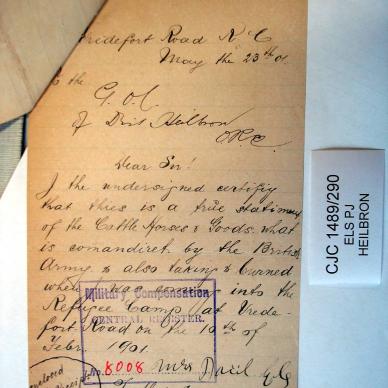 Vredefort Road R.C
May the 23th 01.
To the
G.O.C.
of Dist Heilbron
O.R.C.
Dear Sir!
I the undersigned certifiy
that thies is a true statiment
of the Cattle Horses & Goods. what
is comandiret by the British
Army & also taking & burned
when I was coming into the
Refugee Camp at Vrede-
fort Road on the 10th of
Febr. 1901.
Military Compensation
CENTRAL REGISTER.
No. 8008
Mrs
CJC 1489/290
ELS PJ
HEILBRON